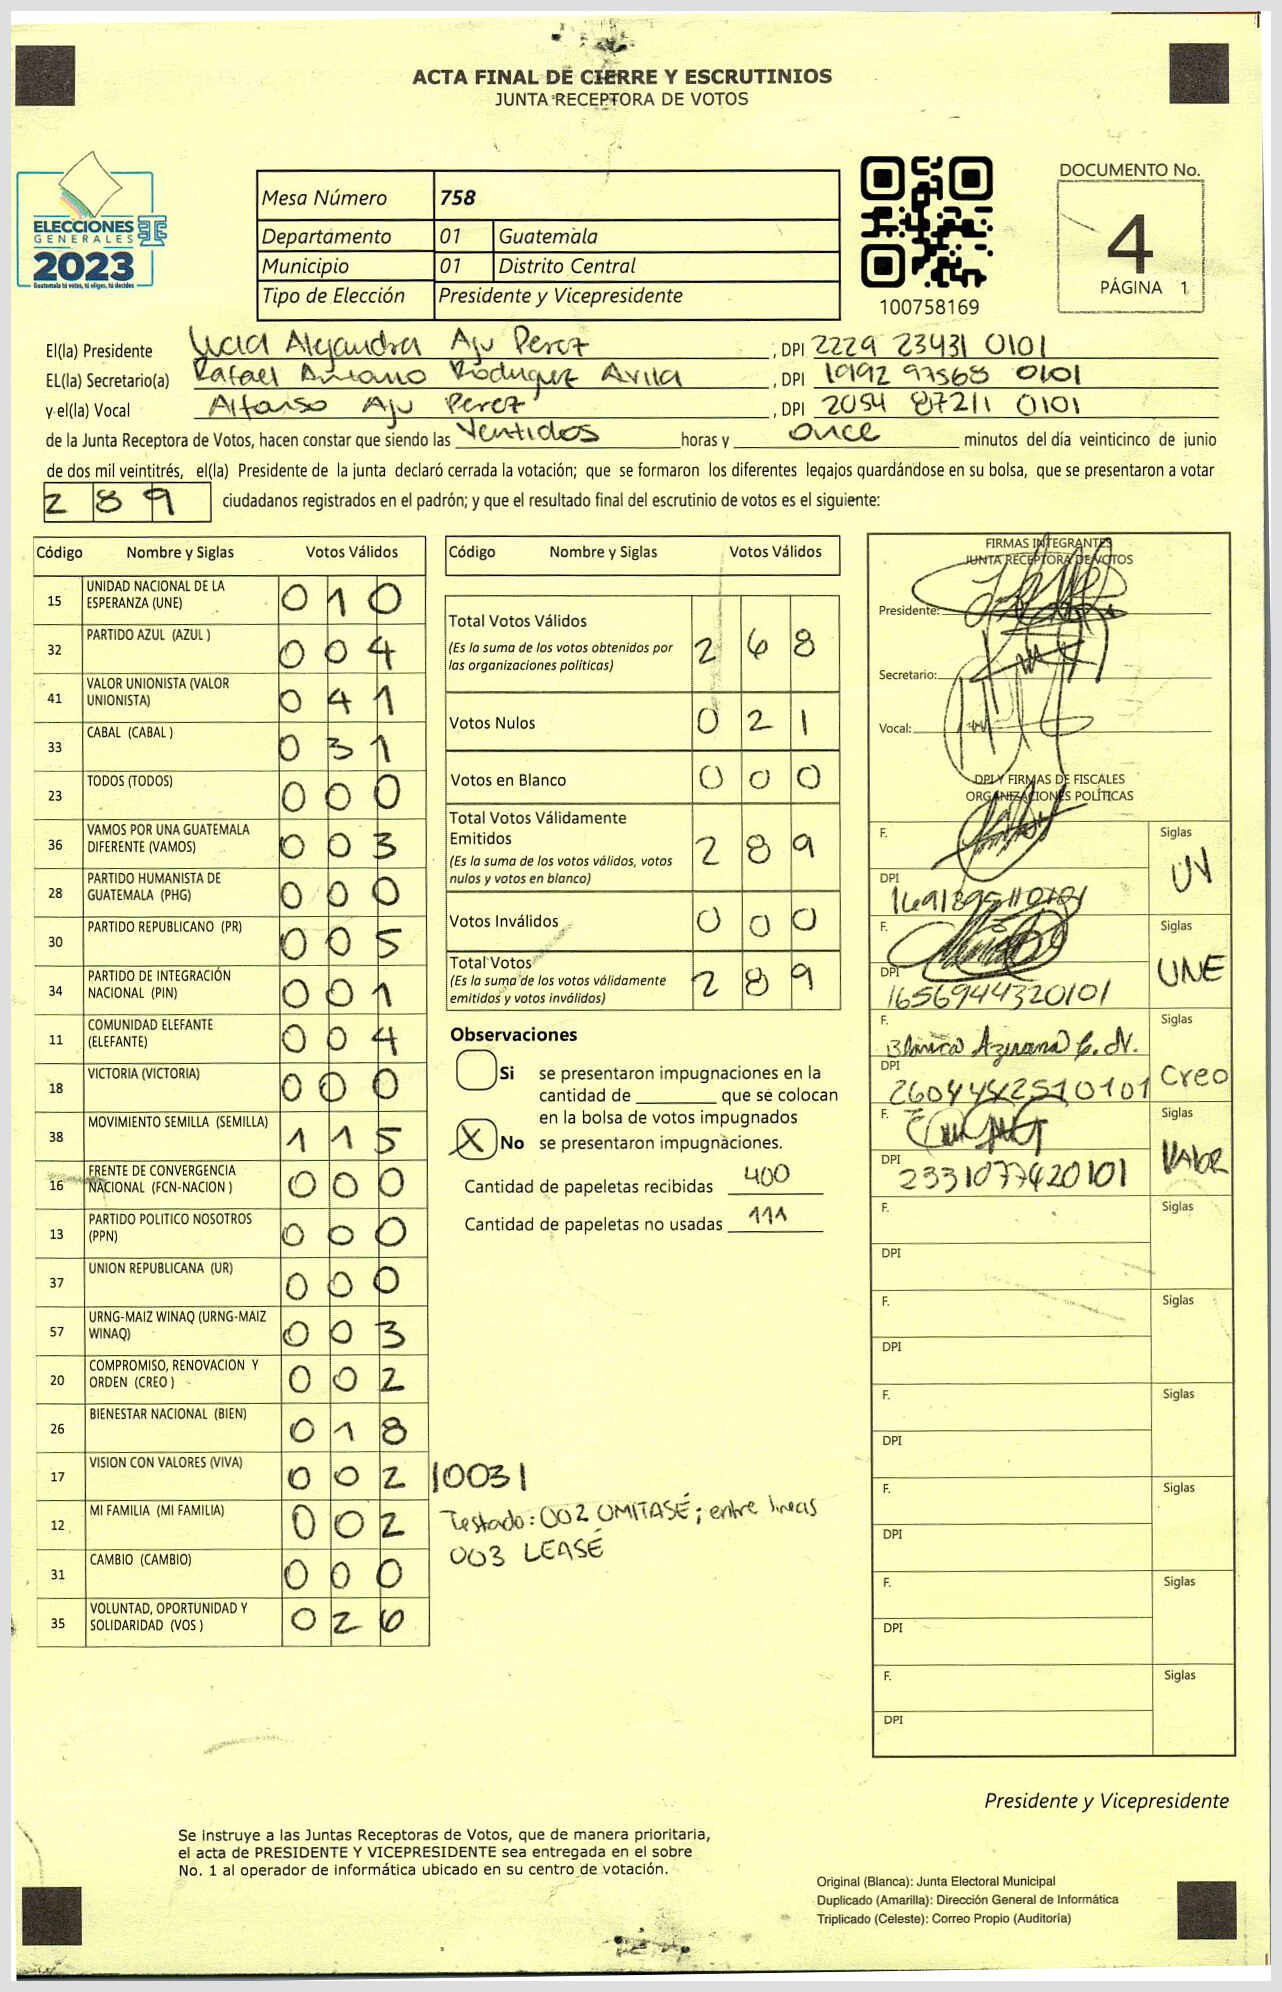 ACTA FINAL DE CIERRE Y ESCRUTINIOS
JUNTA RECEPTORA DE VOTOS
ELECCIONES
GENERALES
2023
Guatemala tú votas, tú eliges, tú decides
Mesa Número 758
Departamento 01 Guatemala
Municipio 01 Distrito Central
Tipo de Elección Presidente y Vicepresidente
100758169
DOCUMENTO No.
4
PÁGINA 1
El(la) Presidente Lucia Alejandra Aju Perez , DPI 2229 23431 0101
EL(la) Secretario(a) Rafael Antonio Rodriguez Avila , DPI 1992 97568 0101
y el(la) Vocal Alfonso Aju Perez , DPI 2054 87211 0101
de la Junta Receptora de Votos, hacen constar que siendo las Ventidos horas y once minutos del día veinticinco de junio
de dos mil veintitrés, el(la) Presidente de la junta declaró cerrada la votación; que se formaron los diferentes legajos guardándose en su bolsa, que se presentaron a votar
289 ciudadanos registrados en el padrón; y que el resultado final del escrutinio de votos es el siguiente:
Código Nombre y Siglas Votos Válidos
15 UNIDAD NACIONAL DE LA ESPERANZA (UNE) 010
32 PARTIDO AZUL (AZUL ) 004
41 VALOR UNIONISTA (VALOR UNIONISTA) 041
33 CABAL (CABAL ) 031
23 TODOS (TODOS) 000
36 VAMOS POR UNA GUATEMALA DIFERENTE (VAMOS) 003
28 PARTIDO HUMANISTA DE GUATEMALA (PHG) 000
30 PARTIDO REPUBLICANO (PR) 005
34 PARTIDO DE INTEGRACIÓN NACIONAL (PIN) 001
11 COMUNIDAD ELEFANTE (ELEFANTE) 004
18 VICTORIA (VICTORIA) 000
38 MOVIMIENTO SEMILLA (SEMILLA) 115
16 FRENTE DE CONVERGENCIA NACIONAL (FCN-NACION ) 000
13 PARTIDO POLITICO NOSOTROS (PPN) 000
37 UNION REPUBLICANA (UR) 000
57 URNG-MAIZ WINAQ (URNG-MAIZ WINAQ) 003
20 COMPROMISO, RENOVACION Y ORDEN (CREO ) 002
26 BIENESTAR NACIONAL (BIEN) 018
17 VISION CON VALORES (VIVA) 002 |003|
12 MI FAMILIA (MI FAMILIA) 002
31 CAMBIO (CAMBIO) 000
35 VOLUNTAD, OPORTUNIDAD Y SOLIDARIDAD (VOS ) 026
Testado: 002 OMITASÉ; entre lineas
003 LEASÉ
Código Nombre y Siglas Votos Válidos
Total Votos Válidos 268
(Es la suma de los votos obtenidos por
las organizaciones políticas)
Votos Nulos 021
Votos en Blanco 000
Total Votos Válidamente
Emitidos 289
(Es la suma de los votos válidos, votos
nulos y votos en blanco)
Votos Inválidos 000
Total Votos 289
(Es la suma de los votos válidamente
emitidos y votos inválidos)
Observaciones
Si se presentaron impugnaciones en la
cantidad de ________ que se colocan
en la bolsa de votos impugnados
X No se presentaron impugnaciones.
Cantidad de papeletas recibidas 400
Cantidad de papeletas no usadas 111
FIRMAS INTEGRANTES
JUNTA RECEPTORA DE VOTOS
Presidente:
Secretario:
Vocal:
DPI Y FIRMAS DE FISCALES
ORGANIZACIONES POLÍTICAS
F. Siglas UV
DPI
F. Siglas UNE
DPI 1656944320101
F. Siglas Creo
DPI 2604442510101
F. Siglas VALOR
DPI 2331077420101
F. Siglas
DPI
F. Siglas
DPI
F. Siglas
DPI
F. Siglas
DPI
F. Siglas
DPI
F. Siglas
DPI
Presidente y Vicepresidente
Se instruye a las Juntas Receptoras de Votos, que de manera prioritaria,
el acta de PRESIDENTE Y VICEPRESIDENTE sea entregada en el sobre
No. 1 al operador de informática ubicado en su centro de votación.
Original (Blanca): Junta Electoral Municipal
Duplicado (Amarilla): Dirección General de Informática
Triplicado (Celeste): Correo Propio (Auditoría)